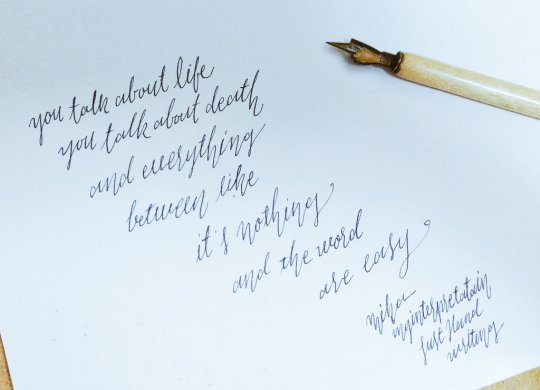 you talk about life
you talk about death
and everything
between like
it's nothing
and the word
are easy
miha
myinterpretatain
just Hand
writing